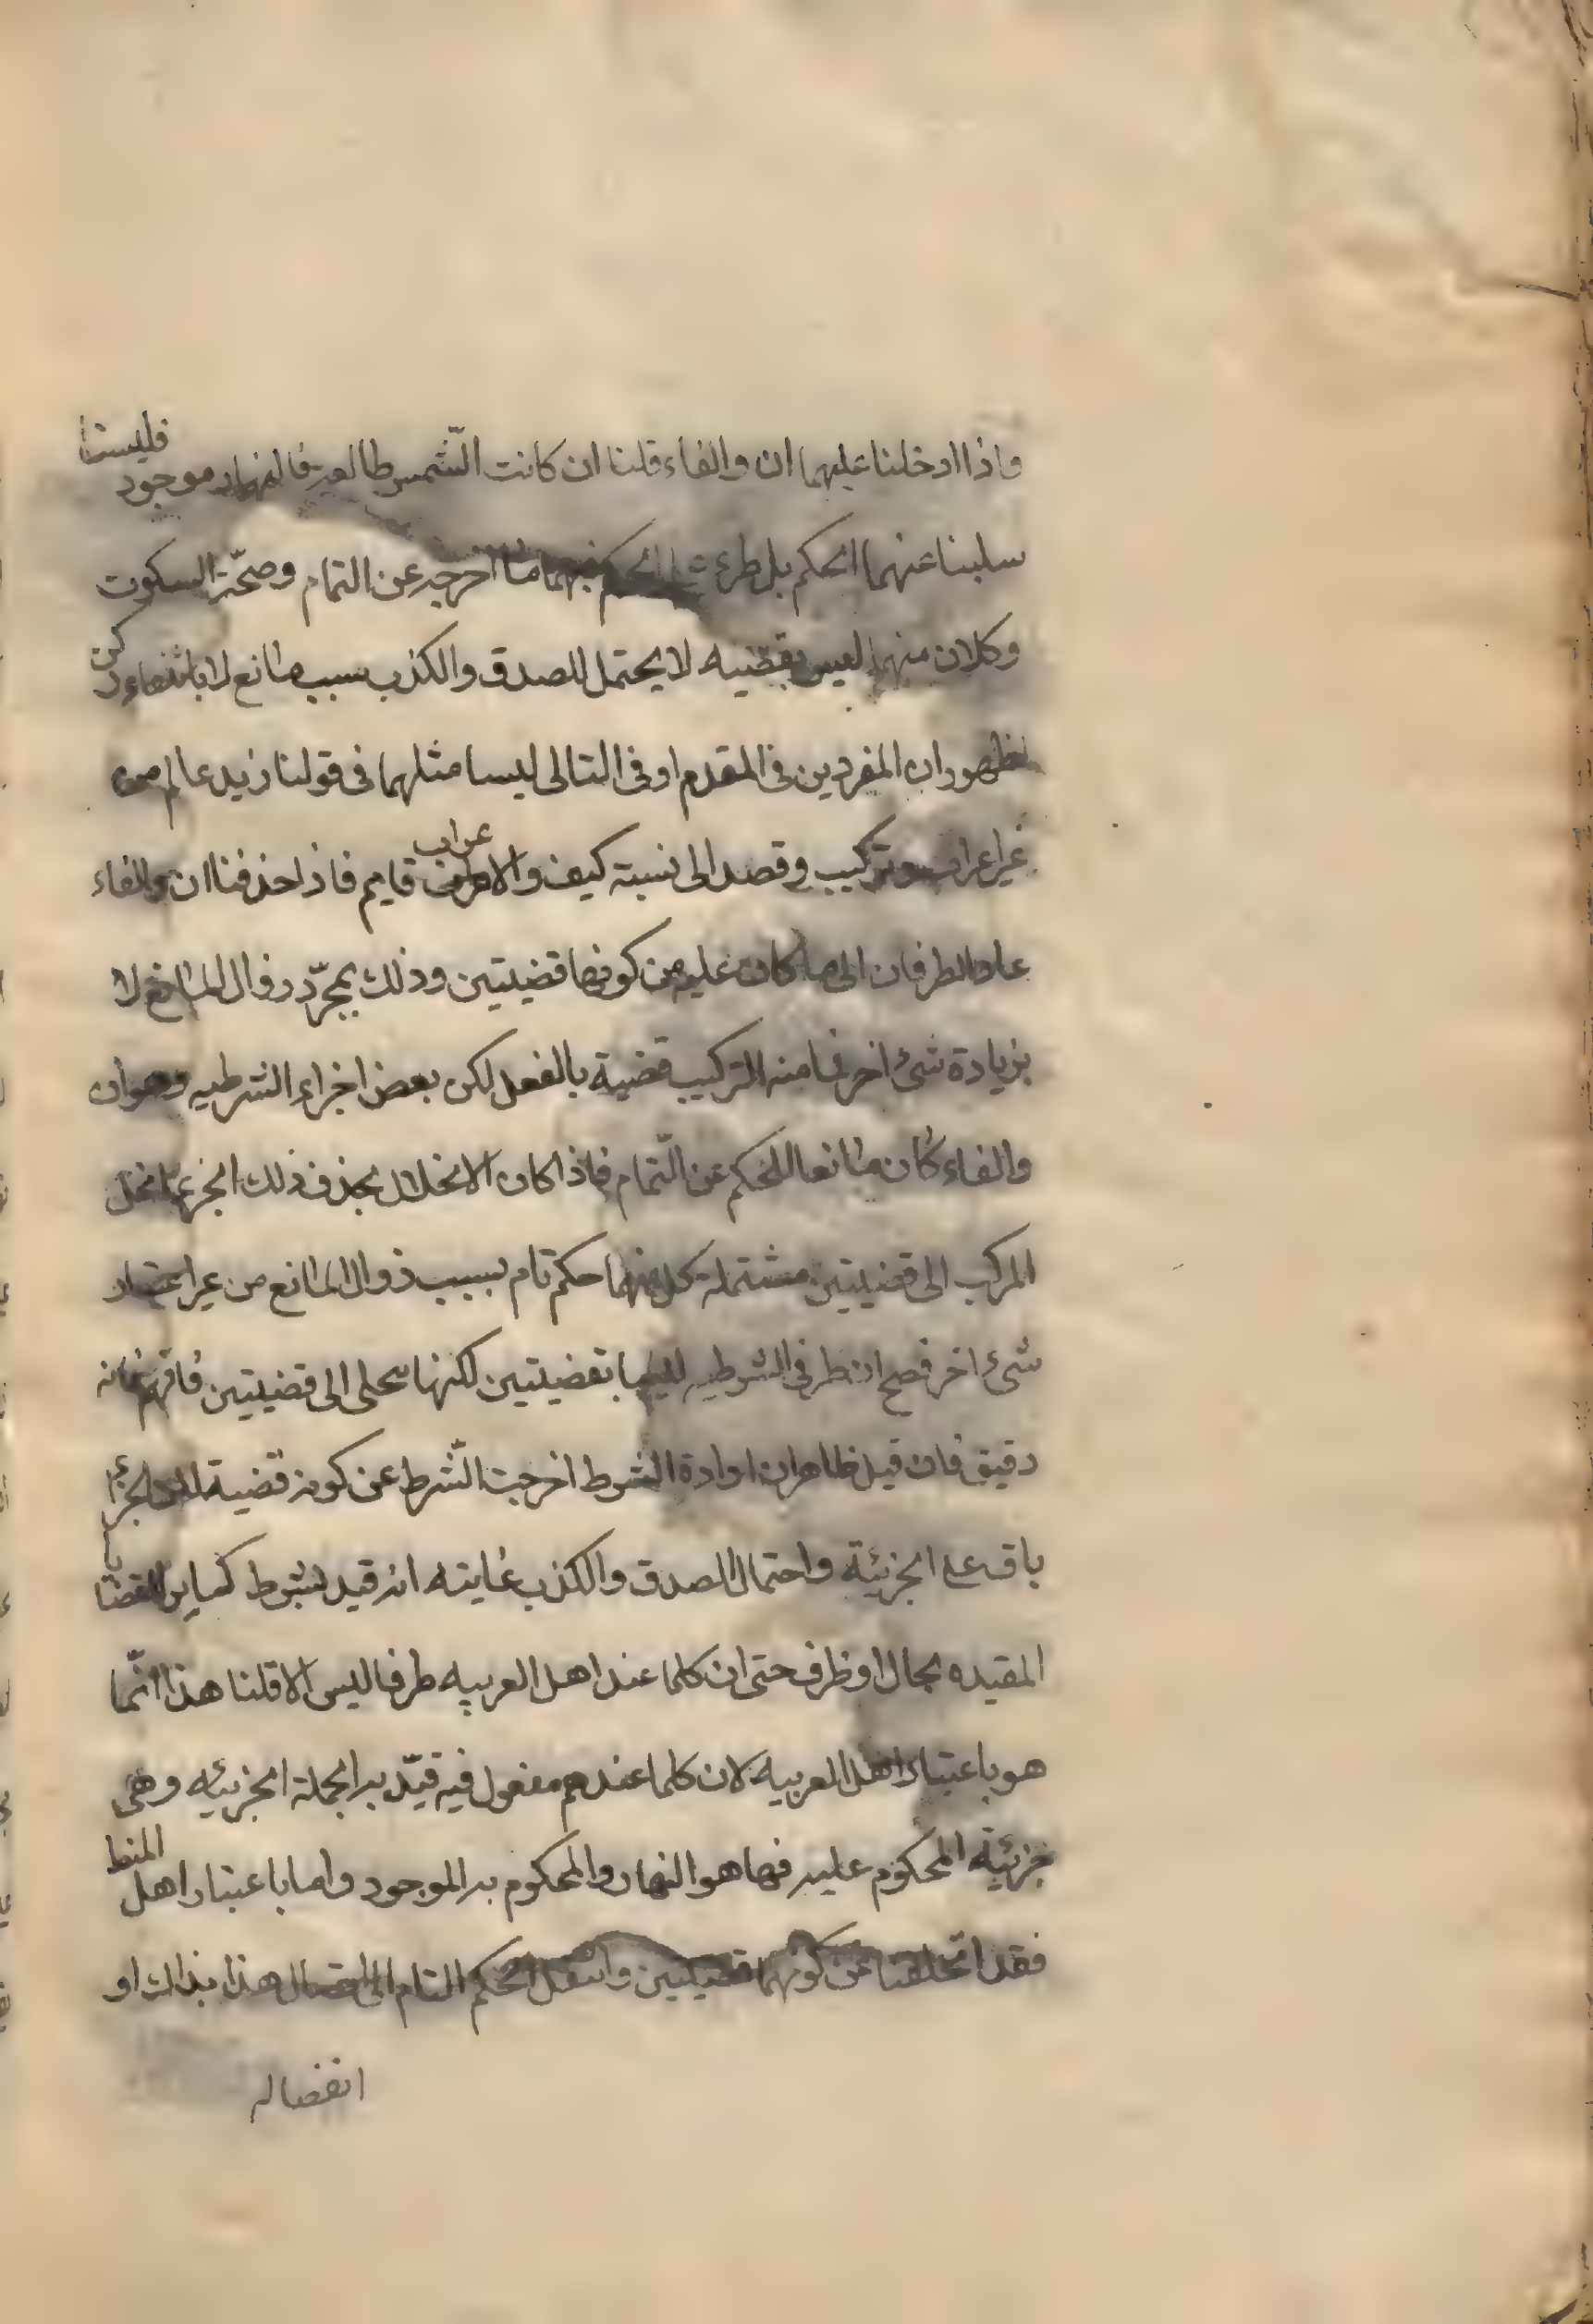 واذا ادخلنا عليهما ان والفاء قلنا ان كانت الشّمس طالعه فالنهار موجود فليستا
سلبنا عنهما الحكم بل طرء على الحكم فيهما ما اخرجه عن التمام وصحّة السكوت
وكلان منهما ليس بقضيه لا يحتمل الصدق والكذب بسبب مانع لا بانتفاء ركن
لظهور ان المفردين فى المقدم او فى التالى ليسا مثلهما فى قولنا زيد عالم من
غير اعراب وتركيب وقصد الى نسبته كيف والاعراب قايم فاذا حذفنا ان والفاء
عاد الطرفان الى ما كان عليه من كونهما قضيتين وذلك بمجرّد زوال المانع لا
بزيادة شئ اخر فما منه التركيب قضية بالفعل لكن بعض اجزاء الشرطيه وهو ان
والفاء كان مانعا للحكم عن التّمام فاذا كان الانحلال بحذف ذلك الجزء انحل
المركب الى قضيتين مشتملة كل منهما حكم تام بسبب زوال المانع من غير اعتبار
شئ اخر فصح ان طرفى الشرطيه ليسا بقضيتين لكنها تنحل الى قضيتين فافهم فانه
دقيق فان قيل ظاهر ان اداة الشرط اخرجت الشّرط عن كونه قضية الجزء
باق على الجزئية واحتمال الصدق والكذب غايته انه قيد بشرط كساير القضايا
المقيده بحال او ظرف حتى ان كلما عند اهل العربيه ظرفا ليس الا قلنا هذا انّما
هو باعتبار اهل العربيه لان كلما عندهم مفعول فيه قيّد به الجملة الجزئيه وهى
جزئية المحكوم عليه فيها هو النهار والمحكوم به الموجود واما باعتبار اهل المنط
فقد انخلعتا عن كونهما قضيتين وانتقل الحكم التام الى اتصال هذا بذاك او
انفصاله